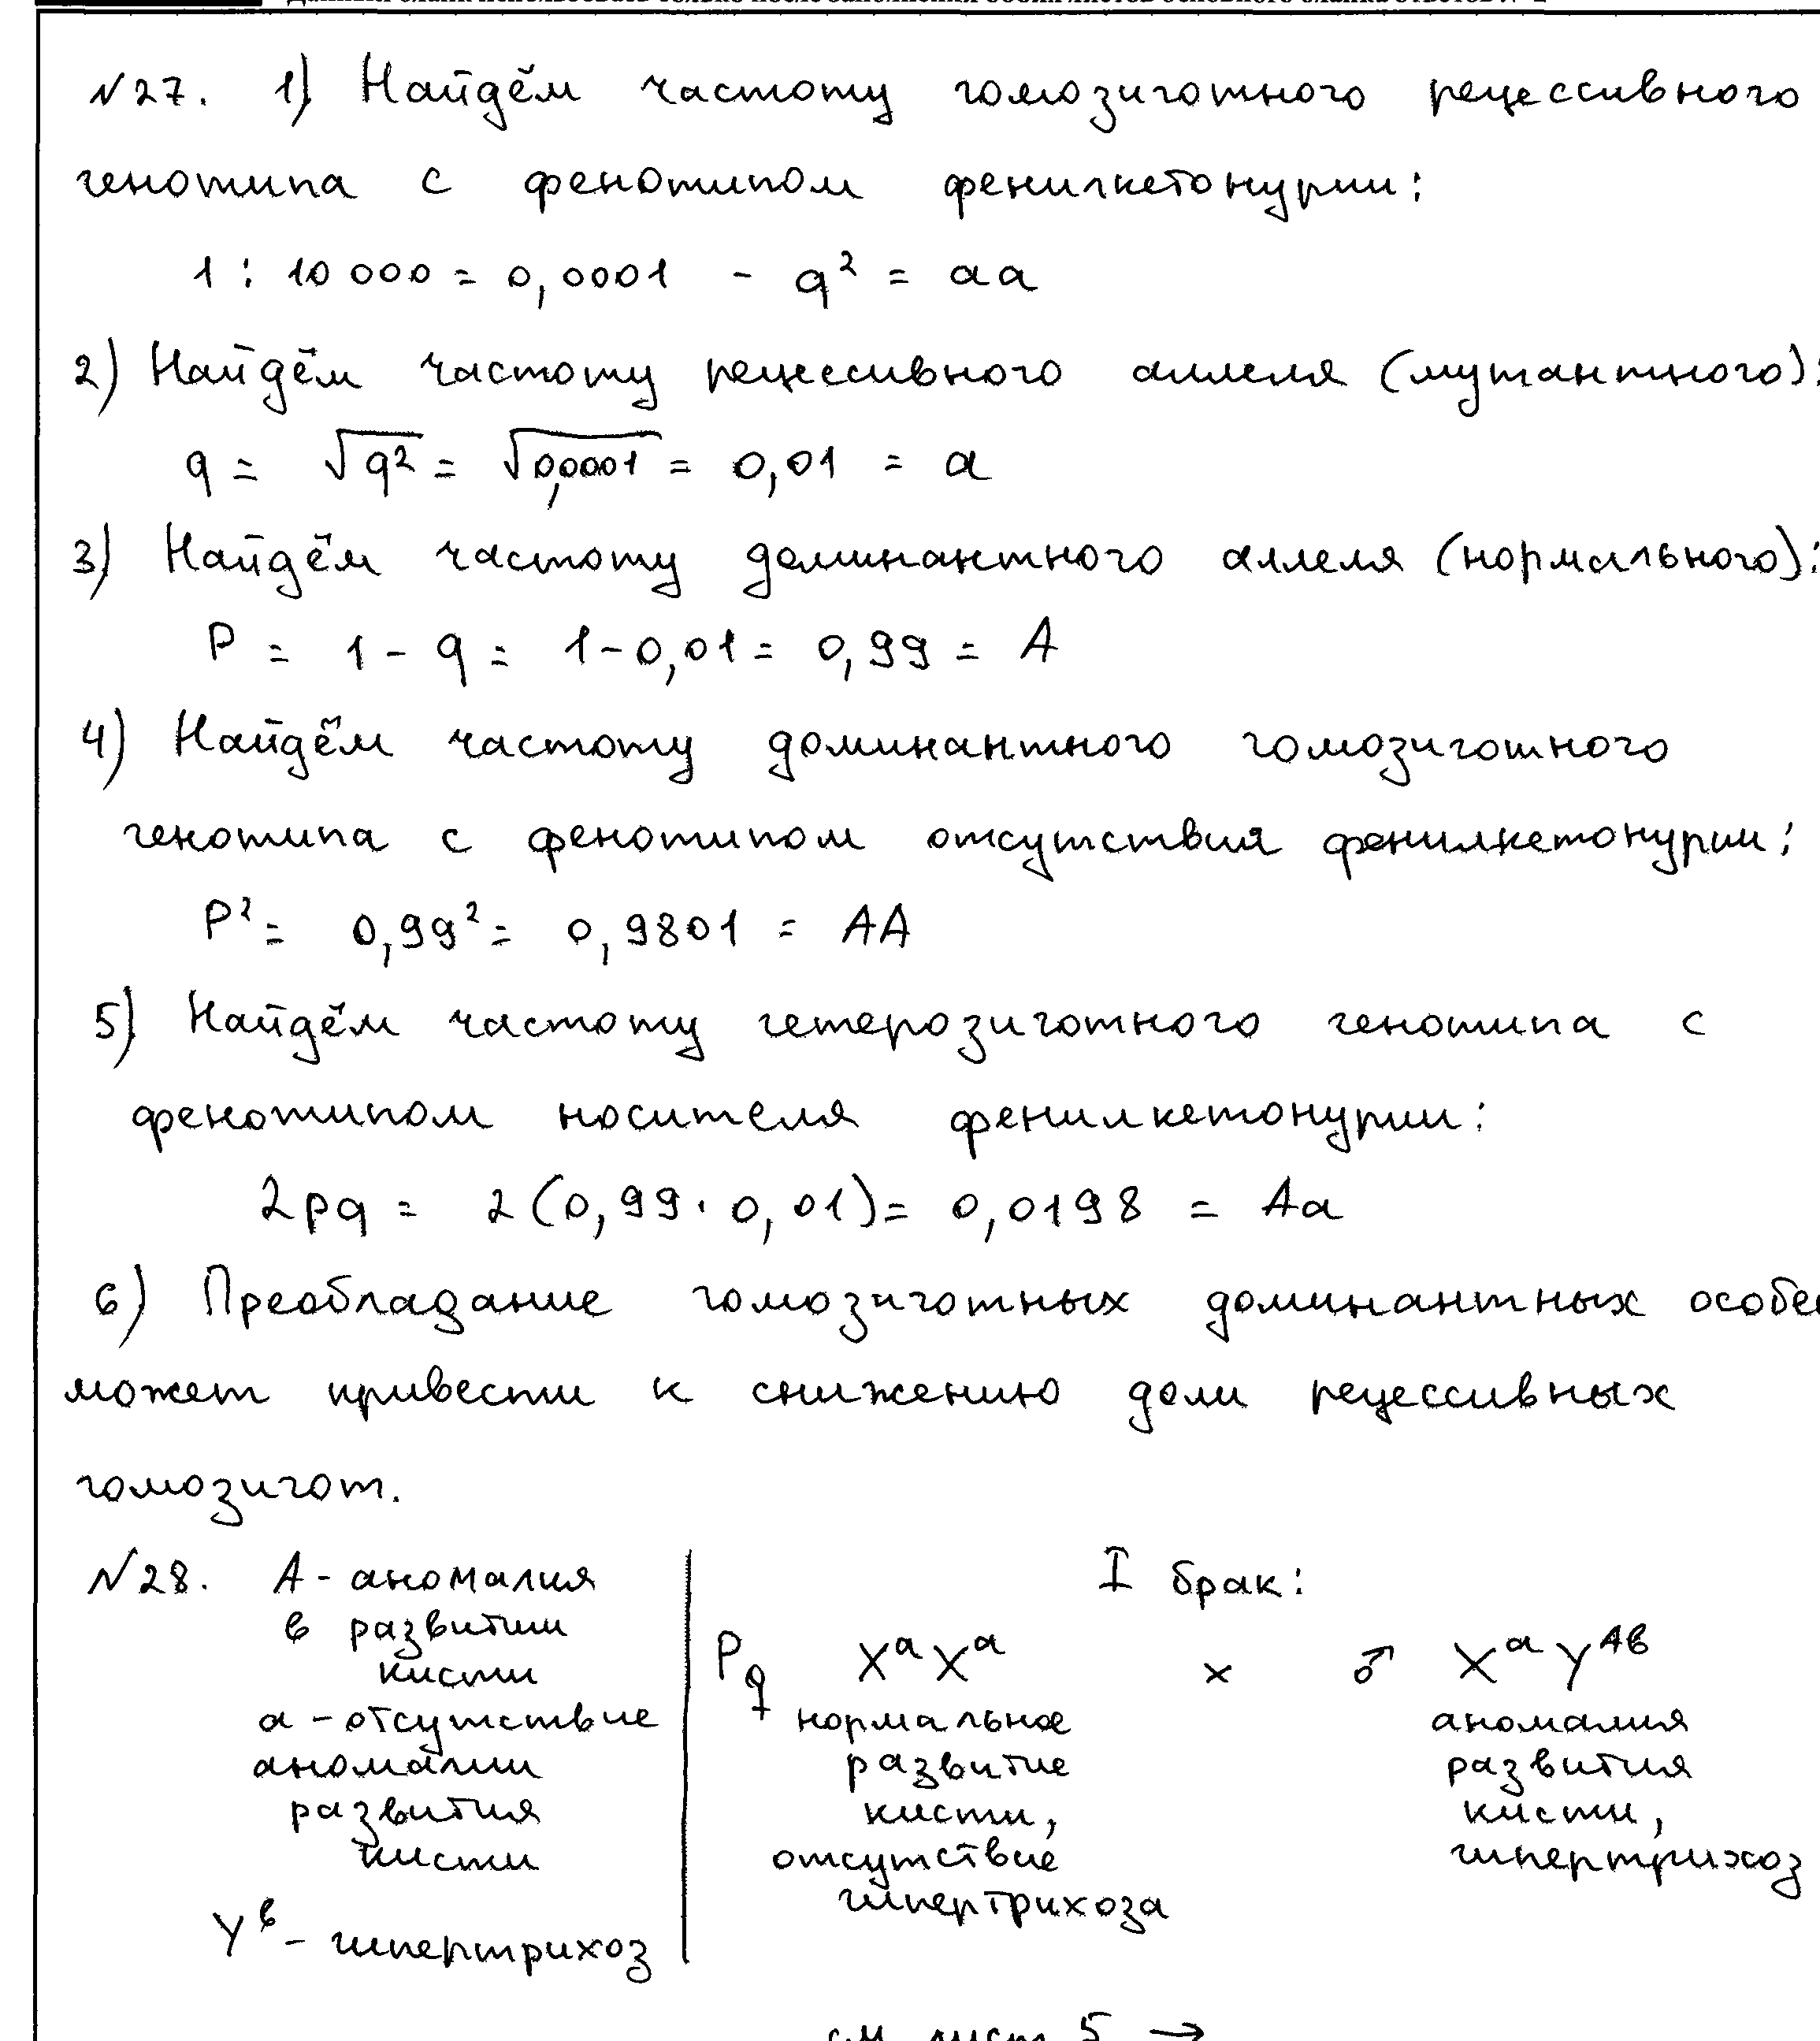 №27. 1) Найдём частоту гомозиготного рецессивного
генотипа с фенотипом фенилкетонурии:
1 : 10 000 = 0,0001 - q² = aa
2) Найдём частоту рецессивного аллеля (мутантного):
q = √q² = √0,0001 = 0,01 = a
3) Найдём частоту доминантного аллеля (нормального):
P = 1 - q = 1 - 0,01 = 0,99 = A
4) Найдём частоту доминантного гомозиготного
генотипа с фенотипом отсутствия фенилкетонурии:
P² = 0,99² = 0,9801 = AA
5) Найдём частоту гетерозиготного генотипа с
фенотипом носителя фенилкетонурии:
2pq = 2(0,99 · 0,01) = 0,0198 = Aa
6) Преобладание гомозиготных доминантных особе
может привести к снижению доли рецессивных
гомозигот.
№28. A - аномалия
в развитии
кисти
a - отсутствие
аномалии
развития
кисти
Yᵇ - гипертрихоз
I брак:
P ♀ XᵃXᵃ × ♂ XᵃYᴬᵇ
нормальное аномалия
развитие развития
кисти, кисти,
отсутствие гипертрихоз
гипертрихоза
см лист 5 →